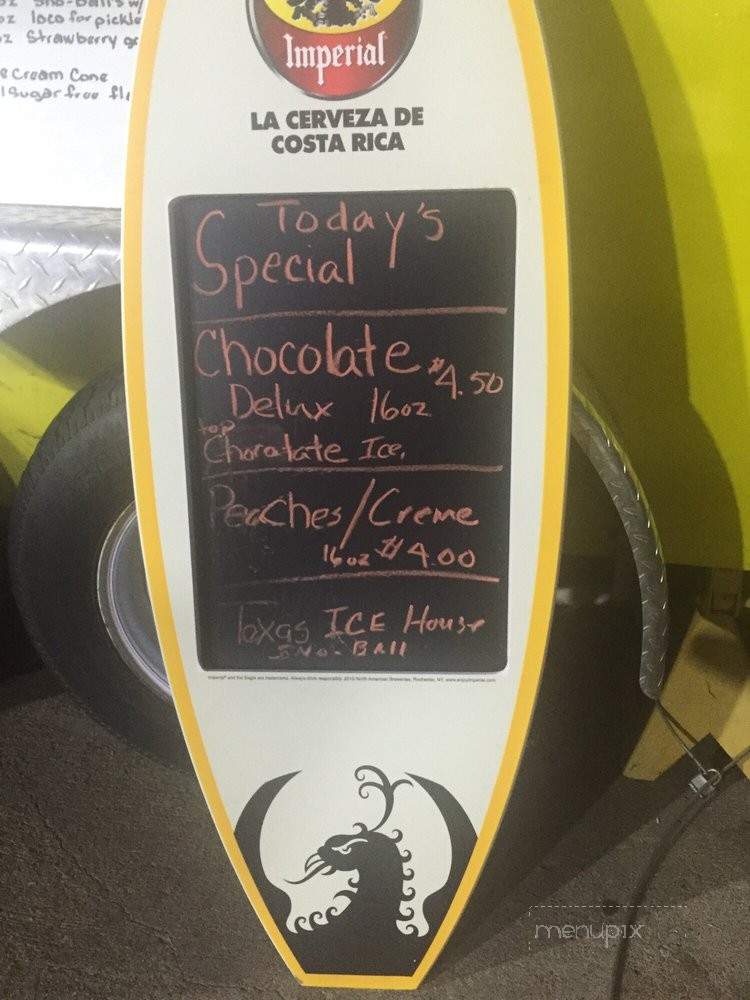 loco for pickle
Strawberry
Cream Cone
Sugar free
Imperial
LA CERVEZA DE
COSTA RICA
Today's
Special
Chocolate $4.50
Delux 16oz
top
Chocolate Ice,
Peaches/Creme
16oz $4.00
Texas ICE House
SNO-BAll
menupix